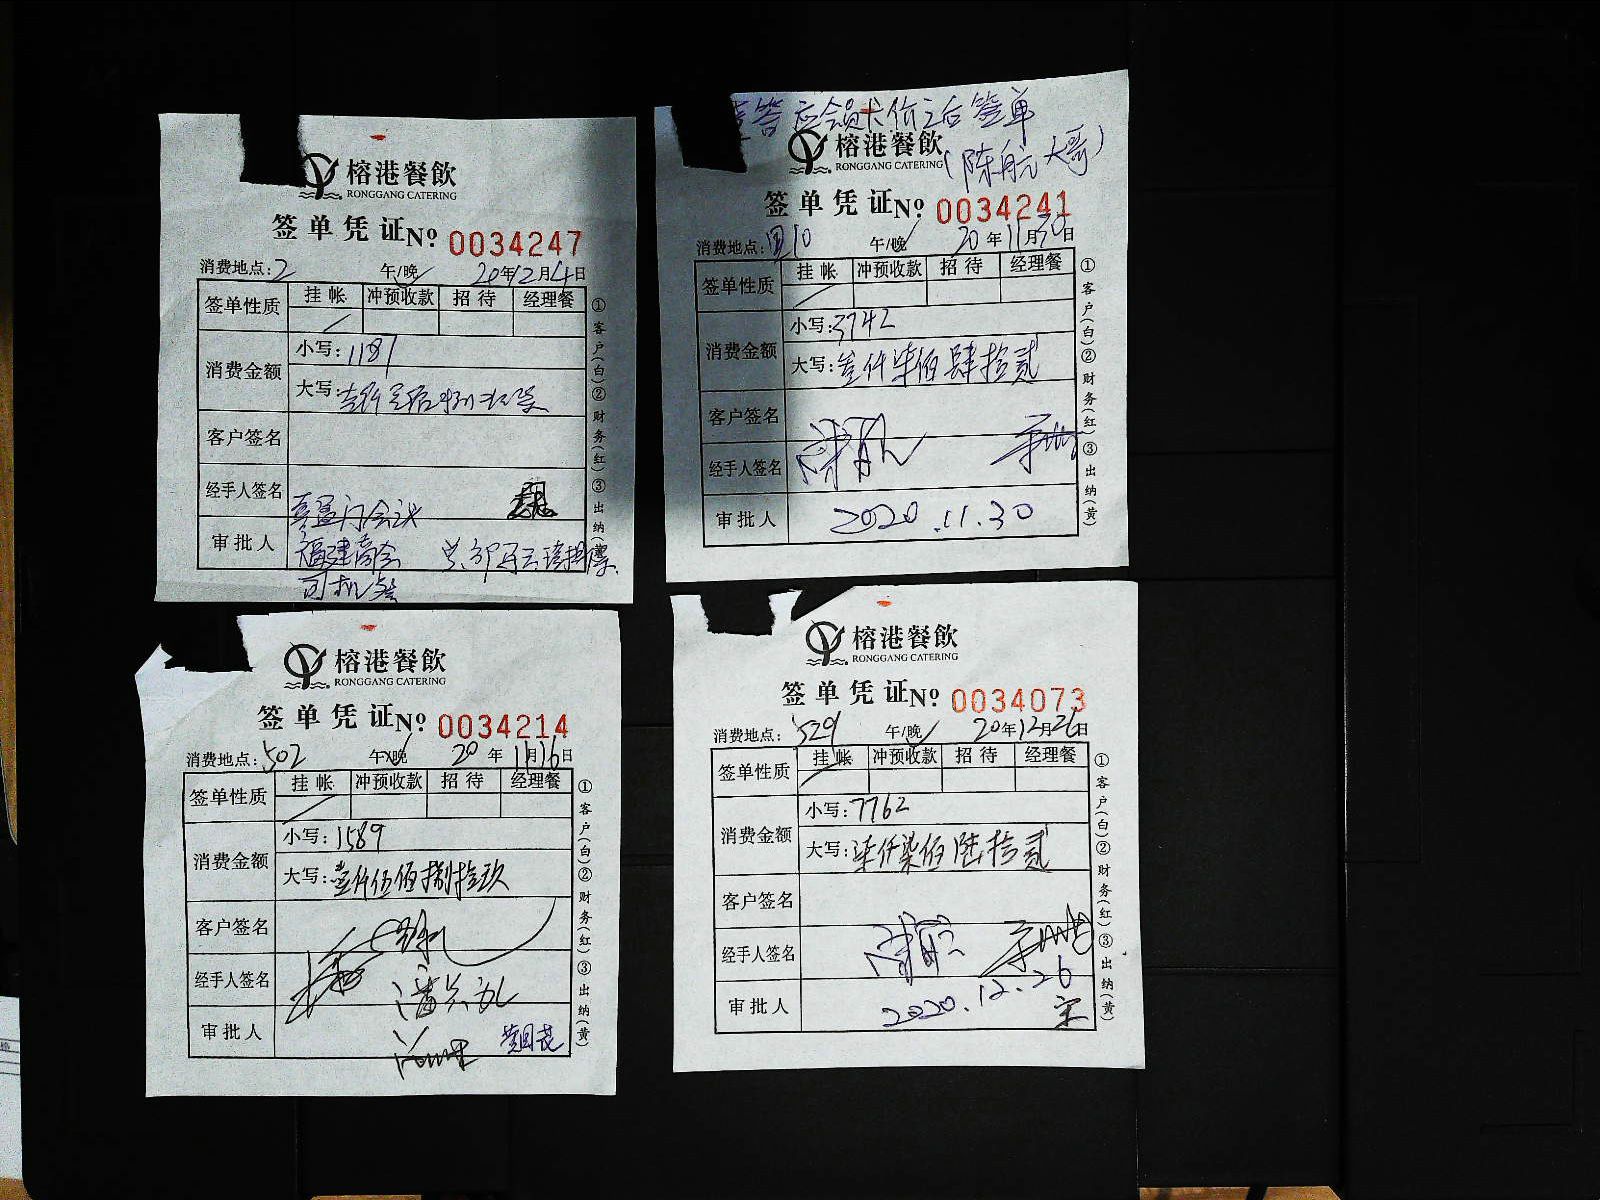 榕港餐飲
RONGGANG CATERING
签单凭证No 0034247
消费地点:2 午/晚 20年12月4日
签单性质 挂帐 冲预收款 招待 经理餐
消费金额
小写:1181
大写:
客户签名
经手人签名
喜盈门会议
审批人
福建商会
①客户(白)②财务(红)③出纳(黄)
应会员卡价之后签单
(陈航大哥)
榕港餐飲
RONGGANG CATERING
签单凭证No 0034241
消费地点: 午/晚 20年11月30日
签单性质 挂帐 冲预收款 招待 经理餐
消费金额
小写:3742
大写:叁仟柒佰肆拾贰
客户签名
经手人签名
审批人 2020.11.30
①客户(白)②财务(红)③出纳(黄)
榕港餐飲
RONGGANG CATERING
签单凭证No 0034214
消费地点:502 午/晚 20年11月16日
签单性质 挂帐 冲预收款 招待 经理餐
消费金额
小写:1589
大写:壹仟伍佰捌拾玖
客户签名
经手人签名
审批人
①客户(白)②财务(红)③出纳(黄)
榕港餐飲
RONGGANG CATERING
签单凭证No 0034073
消费地点:529 午/晚 20年12月26日
签单性质 挂帐 冲预收款 招待 经理餐
消费金额
小写:7762
大写:柒仟柒佰陆拾贰
客户签名
经手人签名
审批人 2020.12.26
①客户(白)②财务(红)③出纳(黄)